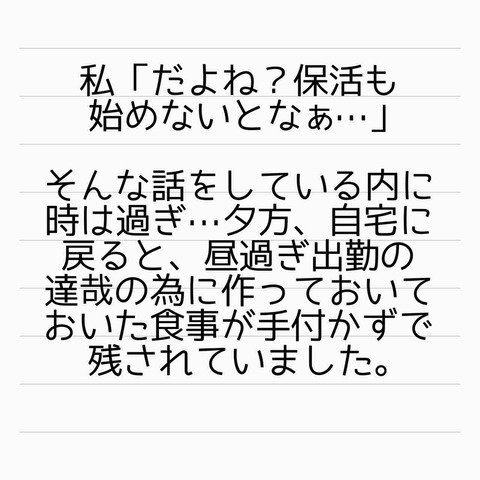 私「だよね？保活も
始めないとなぁ…」
そんな話をしている内に
時は過ぎ…夕方、自宅に
戻ると、昼過ぎ出勤の
達哉の為に作っておいて
おいた食事が手付かずで
残されていました。